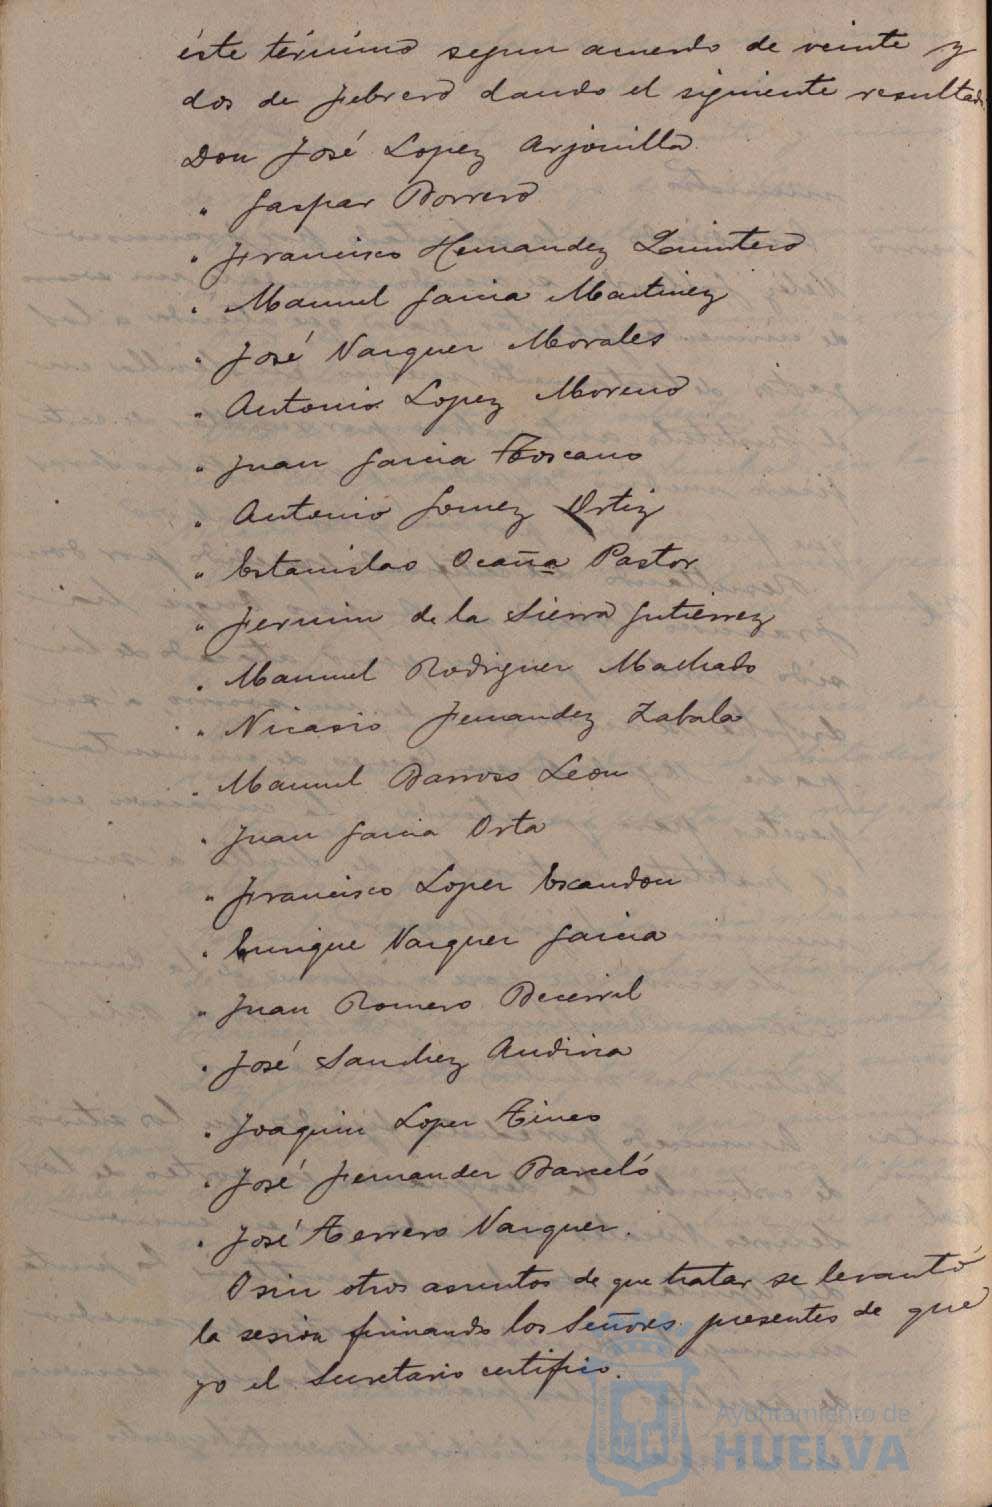 éste término segun acuerdo de veinte y
dos de Febrero dando el siguiente resultado
Don José Lopez Arjonilla
" Gaspar Borrero
" Francisco Hernandez Quintero
" Manuel Garcia Martinez
" José Vazquez Morales
" Antonio Lopez Moreno
" Juan Garcia Toscano
" Antonio Gomez Ortiz
" Estanislao Ocaña Pastor
" Fermin de la Sierra Gutierrez
" Manuel Rodriguez Machado
" Nicasio Fernandez Zabala
" Manuel Barroso Leon
" Juan Garcia Orta
" Francisco Lopez Escandon
" Enrique Vazquez Garcia
" Juan Romero Becerril
" José Sanchez Audina
" Joaquin Lopez Tineo
" José Fernandez Barceló
" José Terrero Vazquez.
Y sin otros asuntos de que tratar se levantó
la sesión firmando los Señores presentes de que
yo el Secretario certifico.
Ayuntamiento de
HUELVA